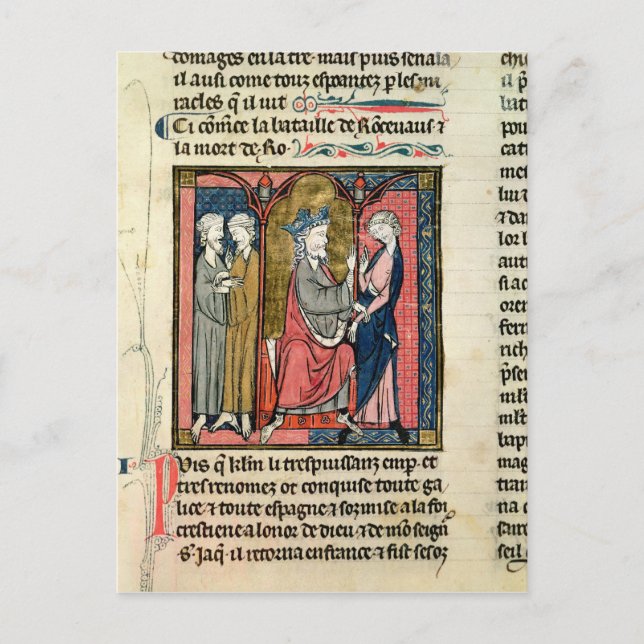 tomages en la tre. mais puis sen ala
il ausi come touz espantez p les mi
racles q̄ il uit
Ci cōmēce la bataille de Rōceuaus ⁊
la mort de Ro.
PVis q̄ kl̄in li trespuissanz emp. et
tres renomez ot conquise toute ga
lice ⁊ toute espagne ⁊ sozmise a la foi
crestiene a lonor de dieu ⁊ de mō seign̄
S. Jaq̄. il retorna en france ⁊ fist sesoz
chie
il p̄
bat
pou
cat
me
lui
⁊ dan
lor l
et a
oren
ferr
rich
p̄se
bap
mag
tran
na
sare
seil